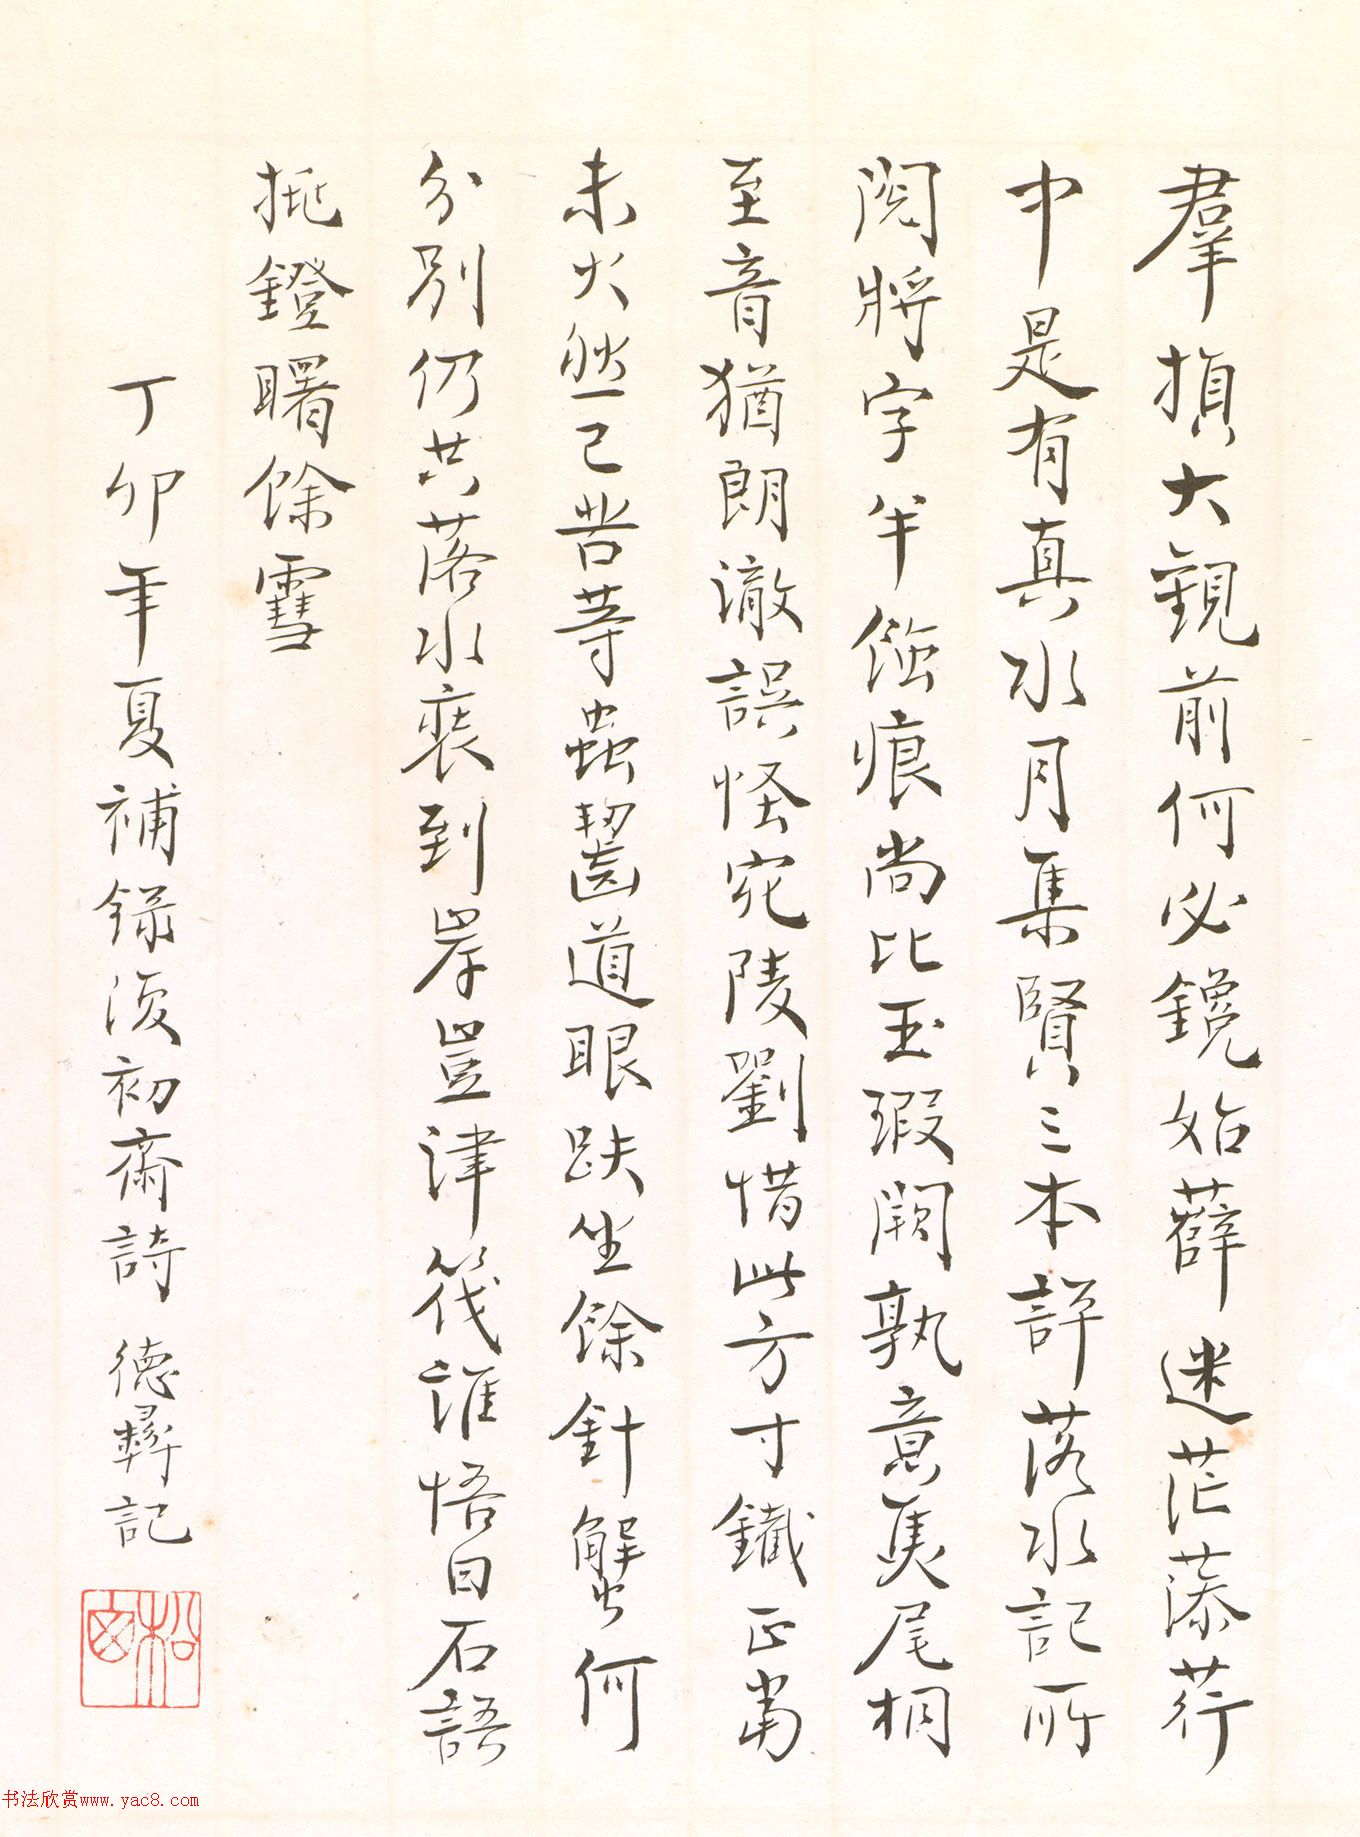 羣損大觀前何必鑱始薛迷茫藻荇
中是有真水月集賢三本評落水記所
閱將字半蝕痕尚比玉瑕闕孰意焦尾桐
至音猶朗澈誤怪宛陵劉惜此方寸鐵正當
未火然已苦等蟲齧道眼趺坐餘針蟹何
分別仍共落水裝到岸豈津筏誰悟日石語
挑鐙曙餘雪
丁卯年夏補錄復初齋詩 德彝記
松窗
书法欣赏www.yac8.com